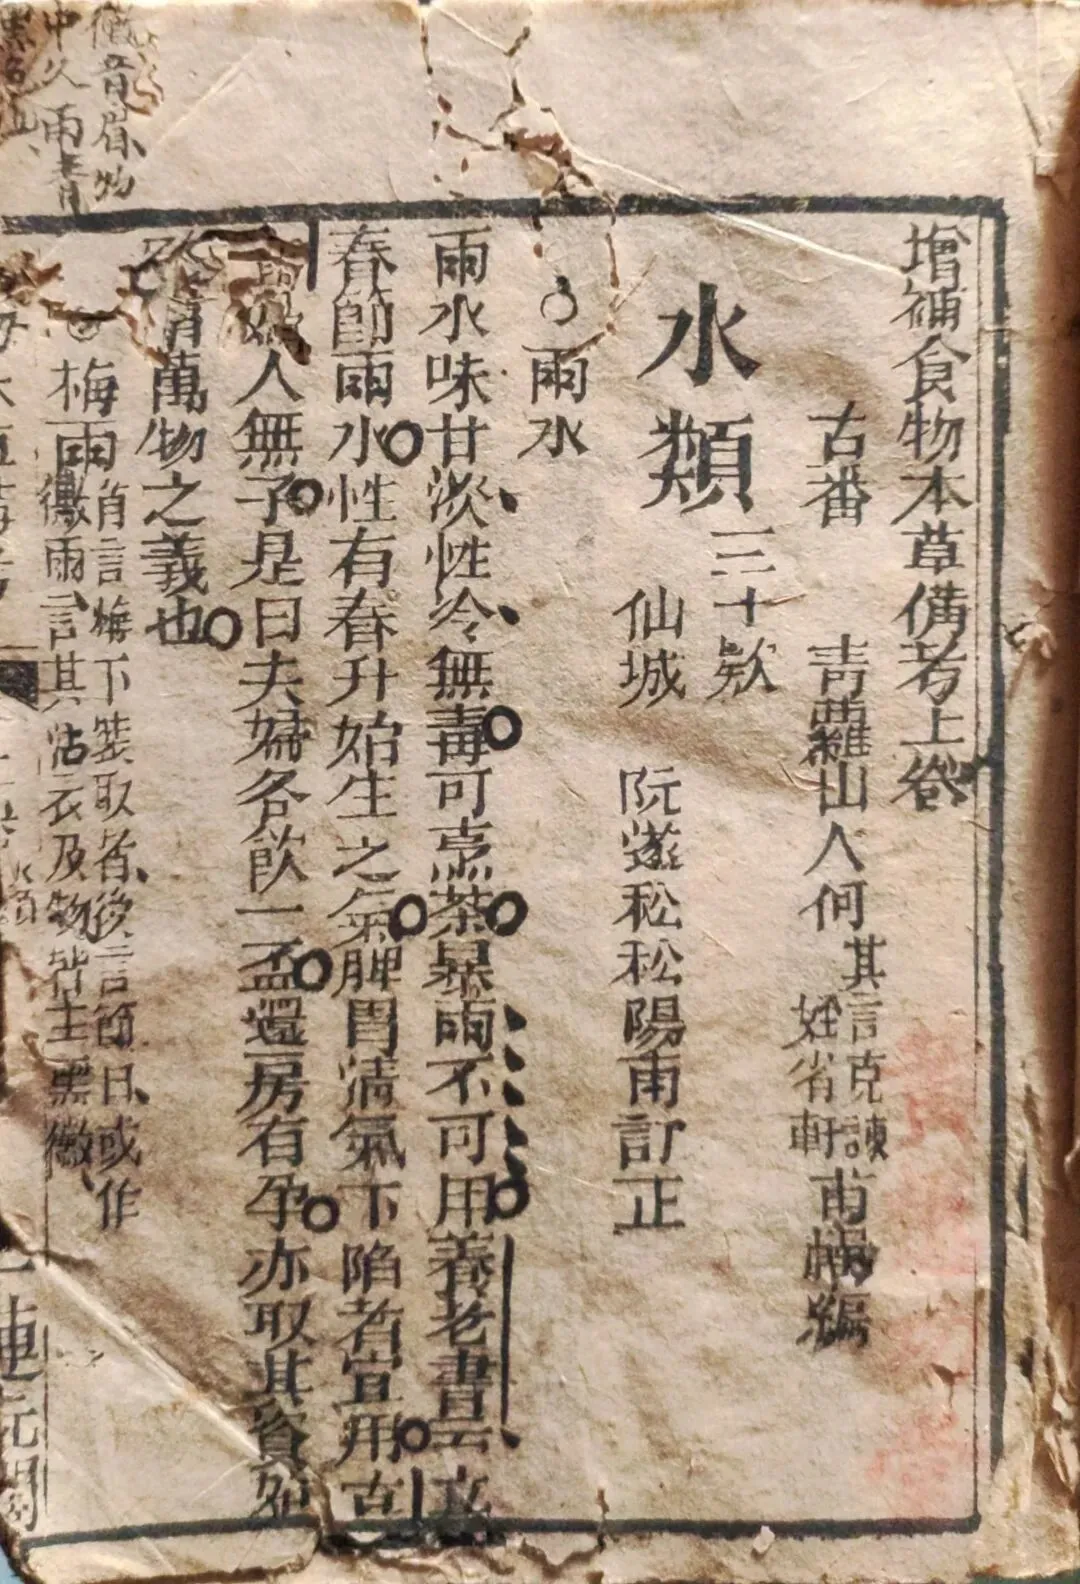 增補食物本草備考上卷
古番 青蘿山人何其言克諫
姪省軒甫輯編
水類三十欵
仙城 阮遂松松陽甫訂正
○雨水
雨水味甘淡性冷無毒可烹茶暴雨不可用養老書云立
春節雨水性有春升始生之氣脾胃清氣下陷者宜用古
婦人無子是日夫婦各飲一盃還房有孕亦取其資始
發萬物之義也
◎梅雨
有言梅下裝取者後言節日或作
黴雨言其沾衣及物皆主黑黴
黴音眉物
中久雨青
連元閣